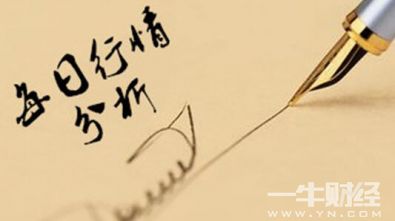 每日行情
分析
一牛财经
WWW.YN.COM